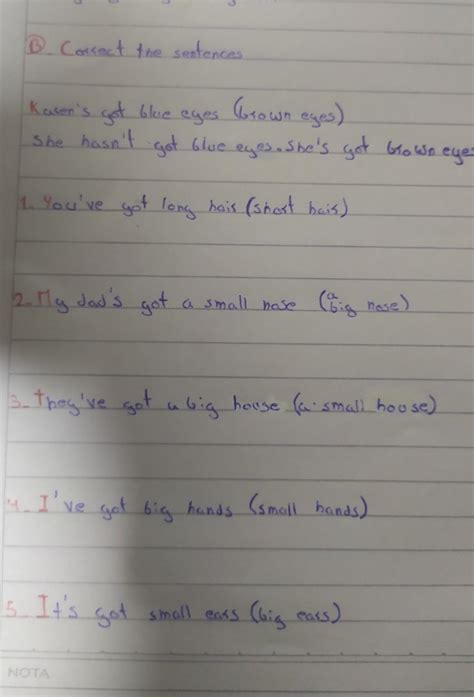 B. Correct the sentences
Karen's got blue eyes (brown eyes)
She hasn't got blue eyes. She's got brown eyes
1. You've got long hair (short hair)
2. My dad's got a small nose (a big nose)
3. They've got a big house (a small house)
4. I've got big hands (small hands)
5. It's got small ears (big ears)
NOTA